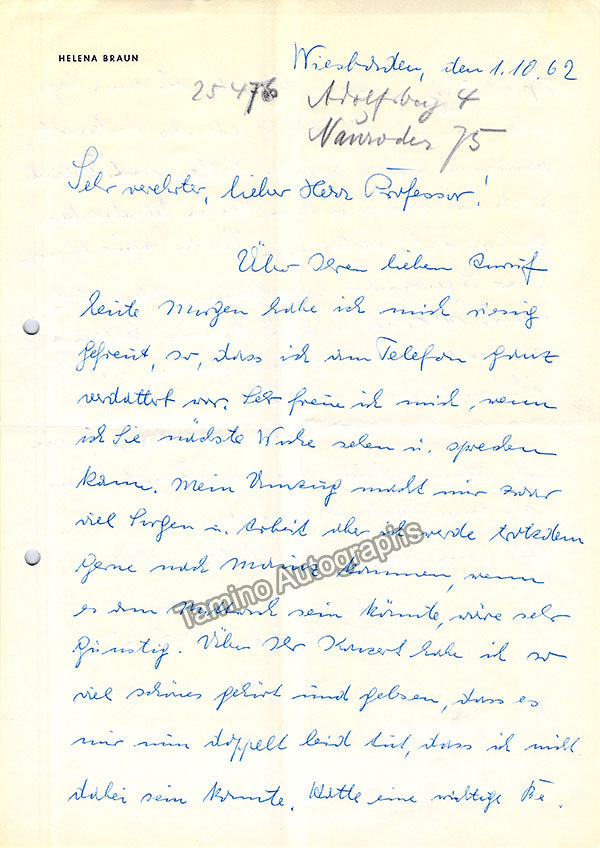 HELENA BRAUN
Wiesbaden, den 1.10.62
25476 Adolfsberg 4
Nauroder 75
Sehr verehrter, lieber Herr Professor!
Über Ihren lieben Anruf
heute Morgen habe ich mich riesig
gefreut, so, dass ich am Telefon ganz
verdattert war. Sehr freue ich mich, wenn
ich Sie nächste Woche sehen u. sprechen
kann. Mein Umzug macht mir zwar
viel Sorgen u. Arbeit aber ich werde trotzdem
gerne nach Mainz kommen, wenn
es am Mittwoch sein könnte, wäre sehr
günstig. Über Ihr Konzert habe ich so
viel schönes gehört und gelesen, dass es
mir nun doppelt leid tut, dass ich nicht
dabei sein konnte. Hatte eine wichtige Be.
Tamino Autographs